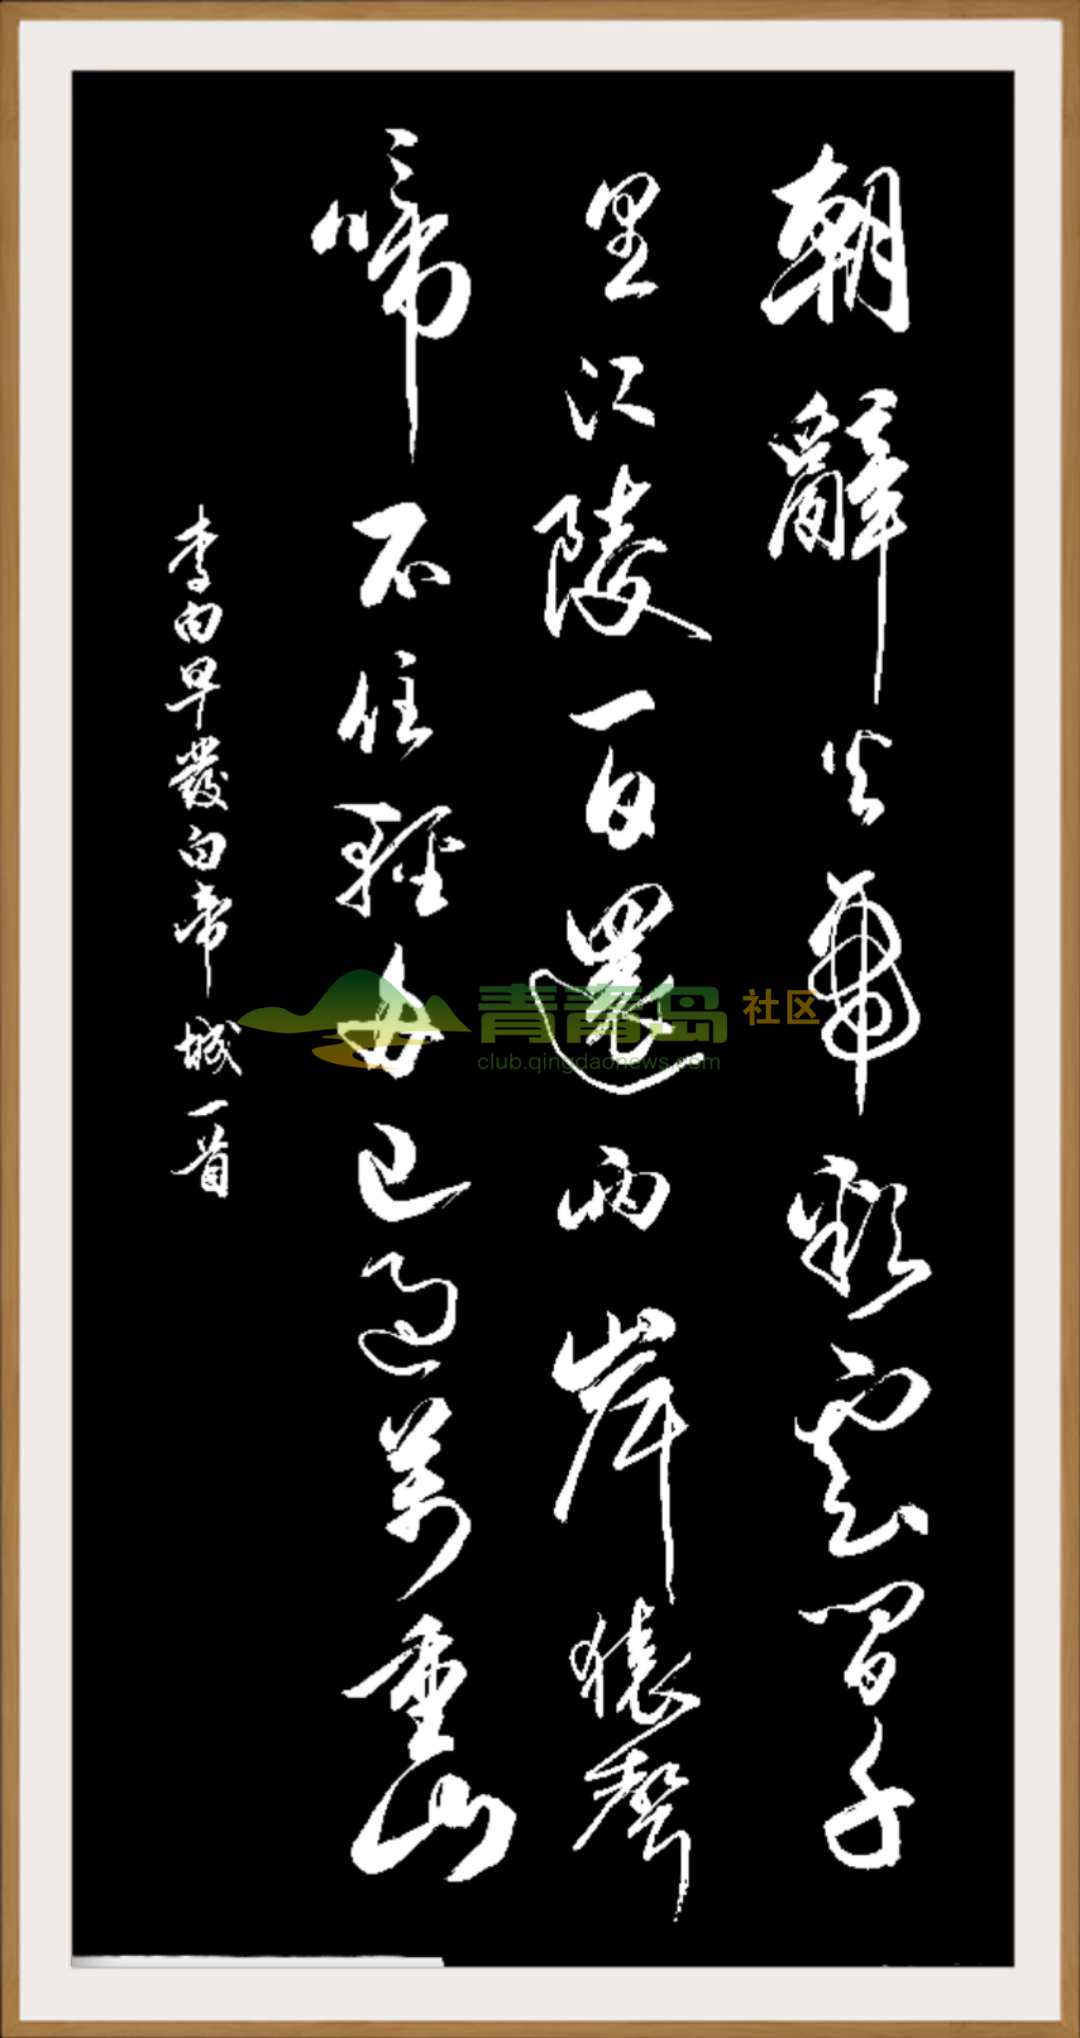 朝辭白帝彩雲間千
里江陵一日還兩岸猿聲
啼不住輕舟已過萬重山
李白早發白帝城一首
青青岛社区
club.qingdaonews.com